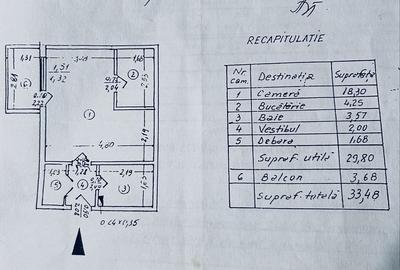 RECAPITULAȚIE
Nr cam. Destinația Suprafața
1 Cameră 18,30
2 Bucătărie 4,25
3 Baie 3,57
4 Vestibul 2,00
5 Debara 1,68
Supraf. utilă 29,80
6 Balcon 3,68
Supraf. totală 33,48
1,31
1,48
2,81
1,51
1,32
2
2,04
6
1
4,80
2,19
2,19
5
4
3